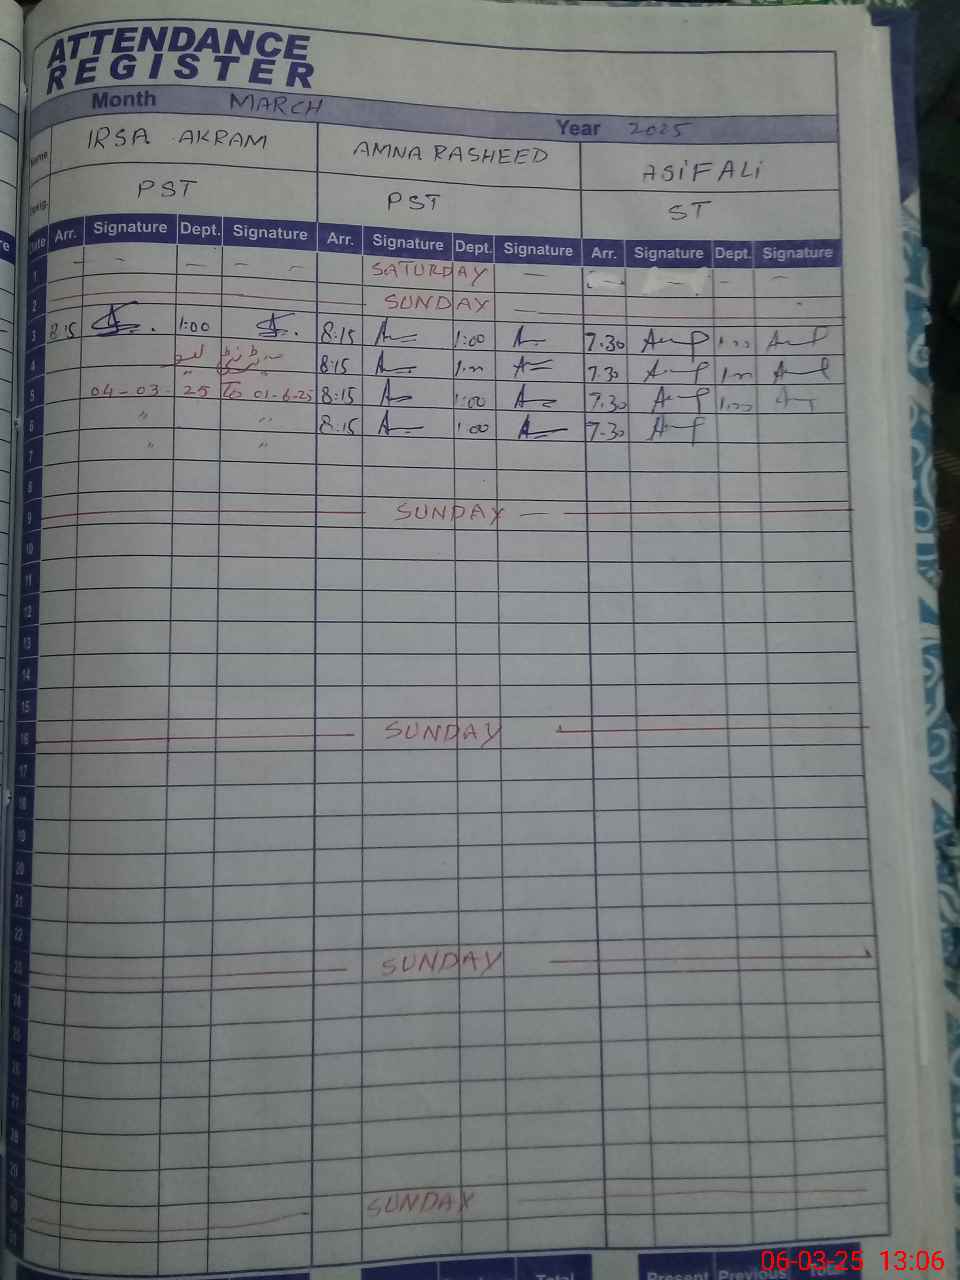 ATTENDANCE
REGISTER
Month MARCH
Year 2025
Name IRSA AKRAM AMNA RASHEED ASIF ALI
Desig. PST PST ST
Date Arr. Signature Dept. Signature Arr. Signature Dept. Signature Arr. Signature Dept. Signature
1 — — — — SATURDAY — — —
2 SUNDAY —
3 8:15 1:00 8:15 1:00 7.30 1.00
4 8:15 1:00 7.30 1:00
5 04-03-25 To 01-6-25 8:15 1:00 7.30 1:00
6 " " 8:15 1:00 7.30
7 " "
8
9 SUNDAY —
10
11
12
13
14
15
16 SUNDAY
17
18
19
20
21
22
23 SUNDAY
24
25
26
27
28
29
30 SUNDAY
31
Total Present Previous Total
06-03-25 13:06